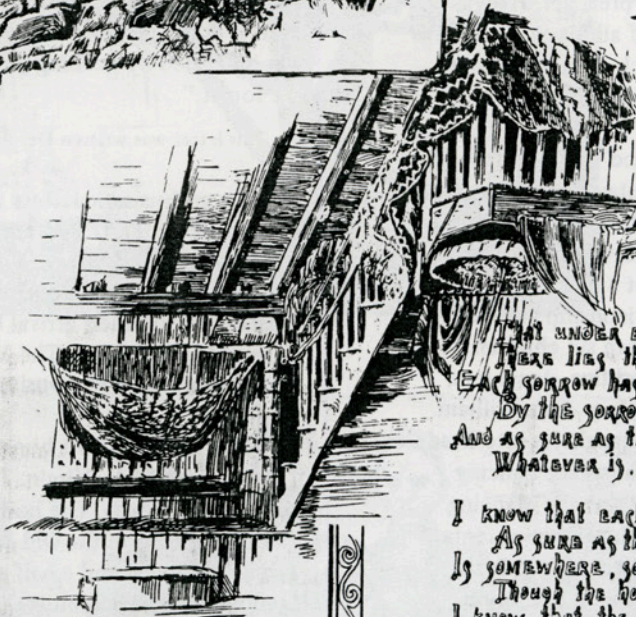 THAT UNDER
THERE LIES
EACH SORROW HAS
BY THE SORRO
AND AS SURE AS
WHATEVER IS,
I KNOW THAT EAC
AS SURE AS TH
IS SOMEWHERE, SO
THOUGH THE HO
I KNOW THAT THE